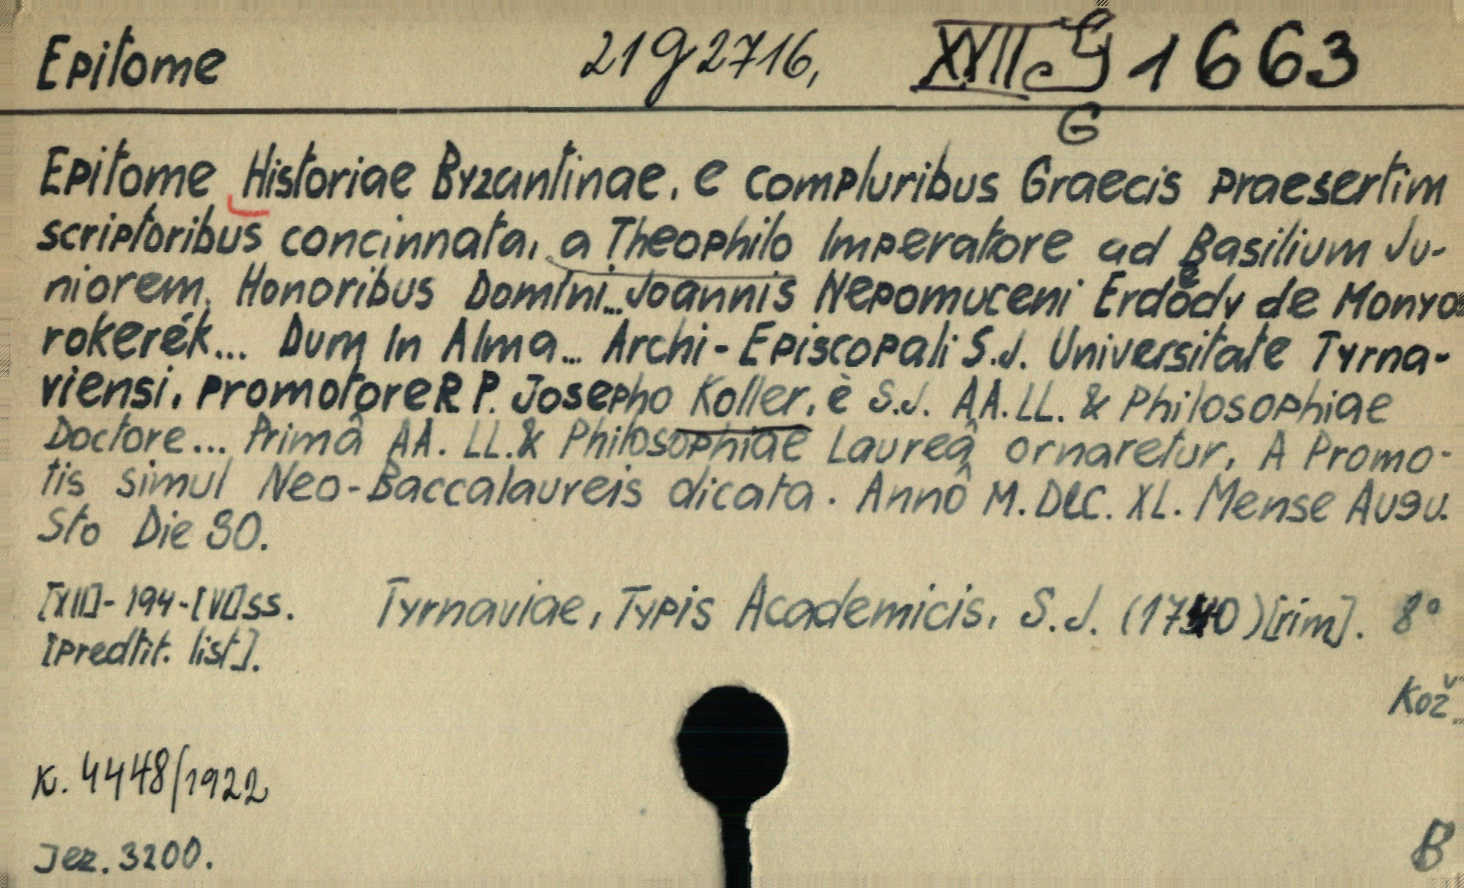 Epitome 21 g 2716, XVII G 1663
G
Epitome Historiae Byzantinae, e compluribus Graecis praesertim
scriptoribus concinnata, a Theophilo Imperatore ad Basilium Ju-
niorem, Honoribus Domini... Joannis Nepomuceni Erdödy de Monyo
rokerék... Dum In Alma... Archi-Episcopali S.J. Universitate Tyrna-
viensi, promotore R P. Josepho Koller, è S.J. AA. LL. & Philosophiae
Doctore... Primâ AA. LL. & Philosophiae Laureâ ornaretur, A Promo-
tis simul Neo-Baccalaureis dicata. Annô M. DCC. XL. Mense Augu.
sto Die 30.
[XII]-194-[VI] ss. Tyrnaviae, Typis Academicis, S.J. (1740) [rim]. 8°
[predtit. list].
Kož.
K. 4448/1922
Jez. 3200. B